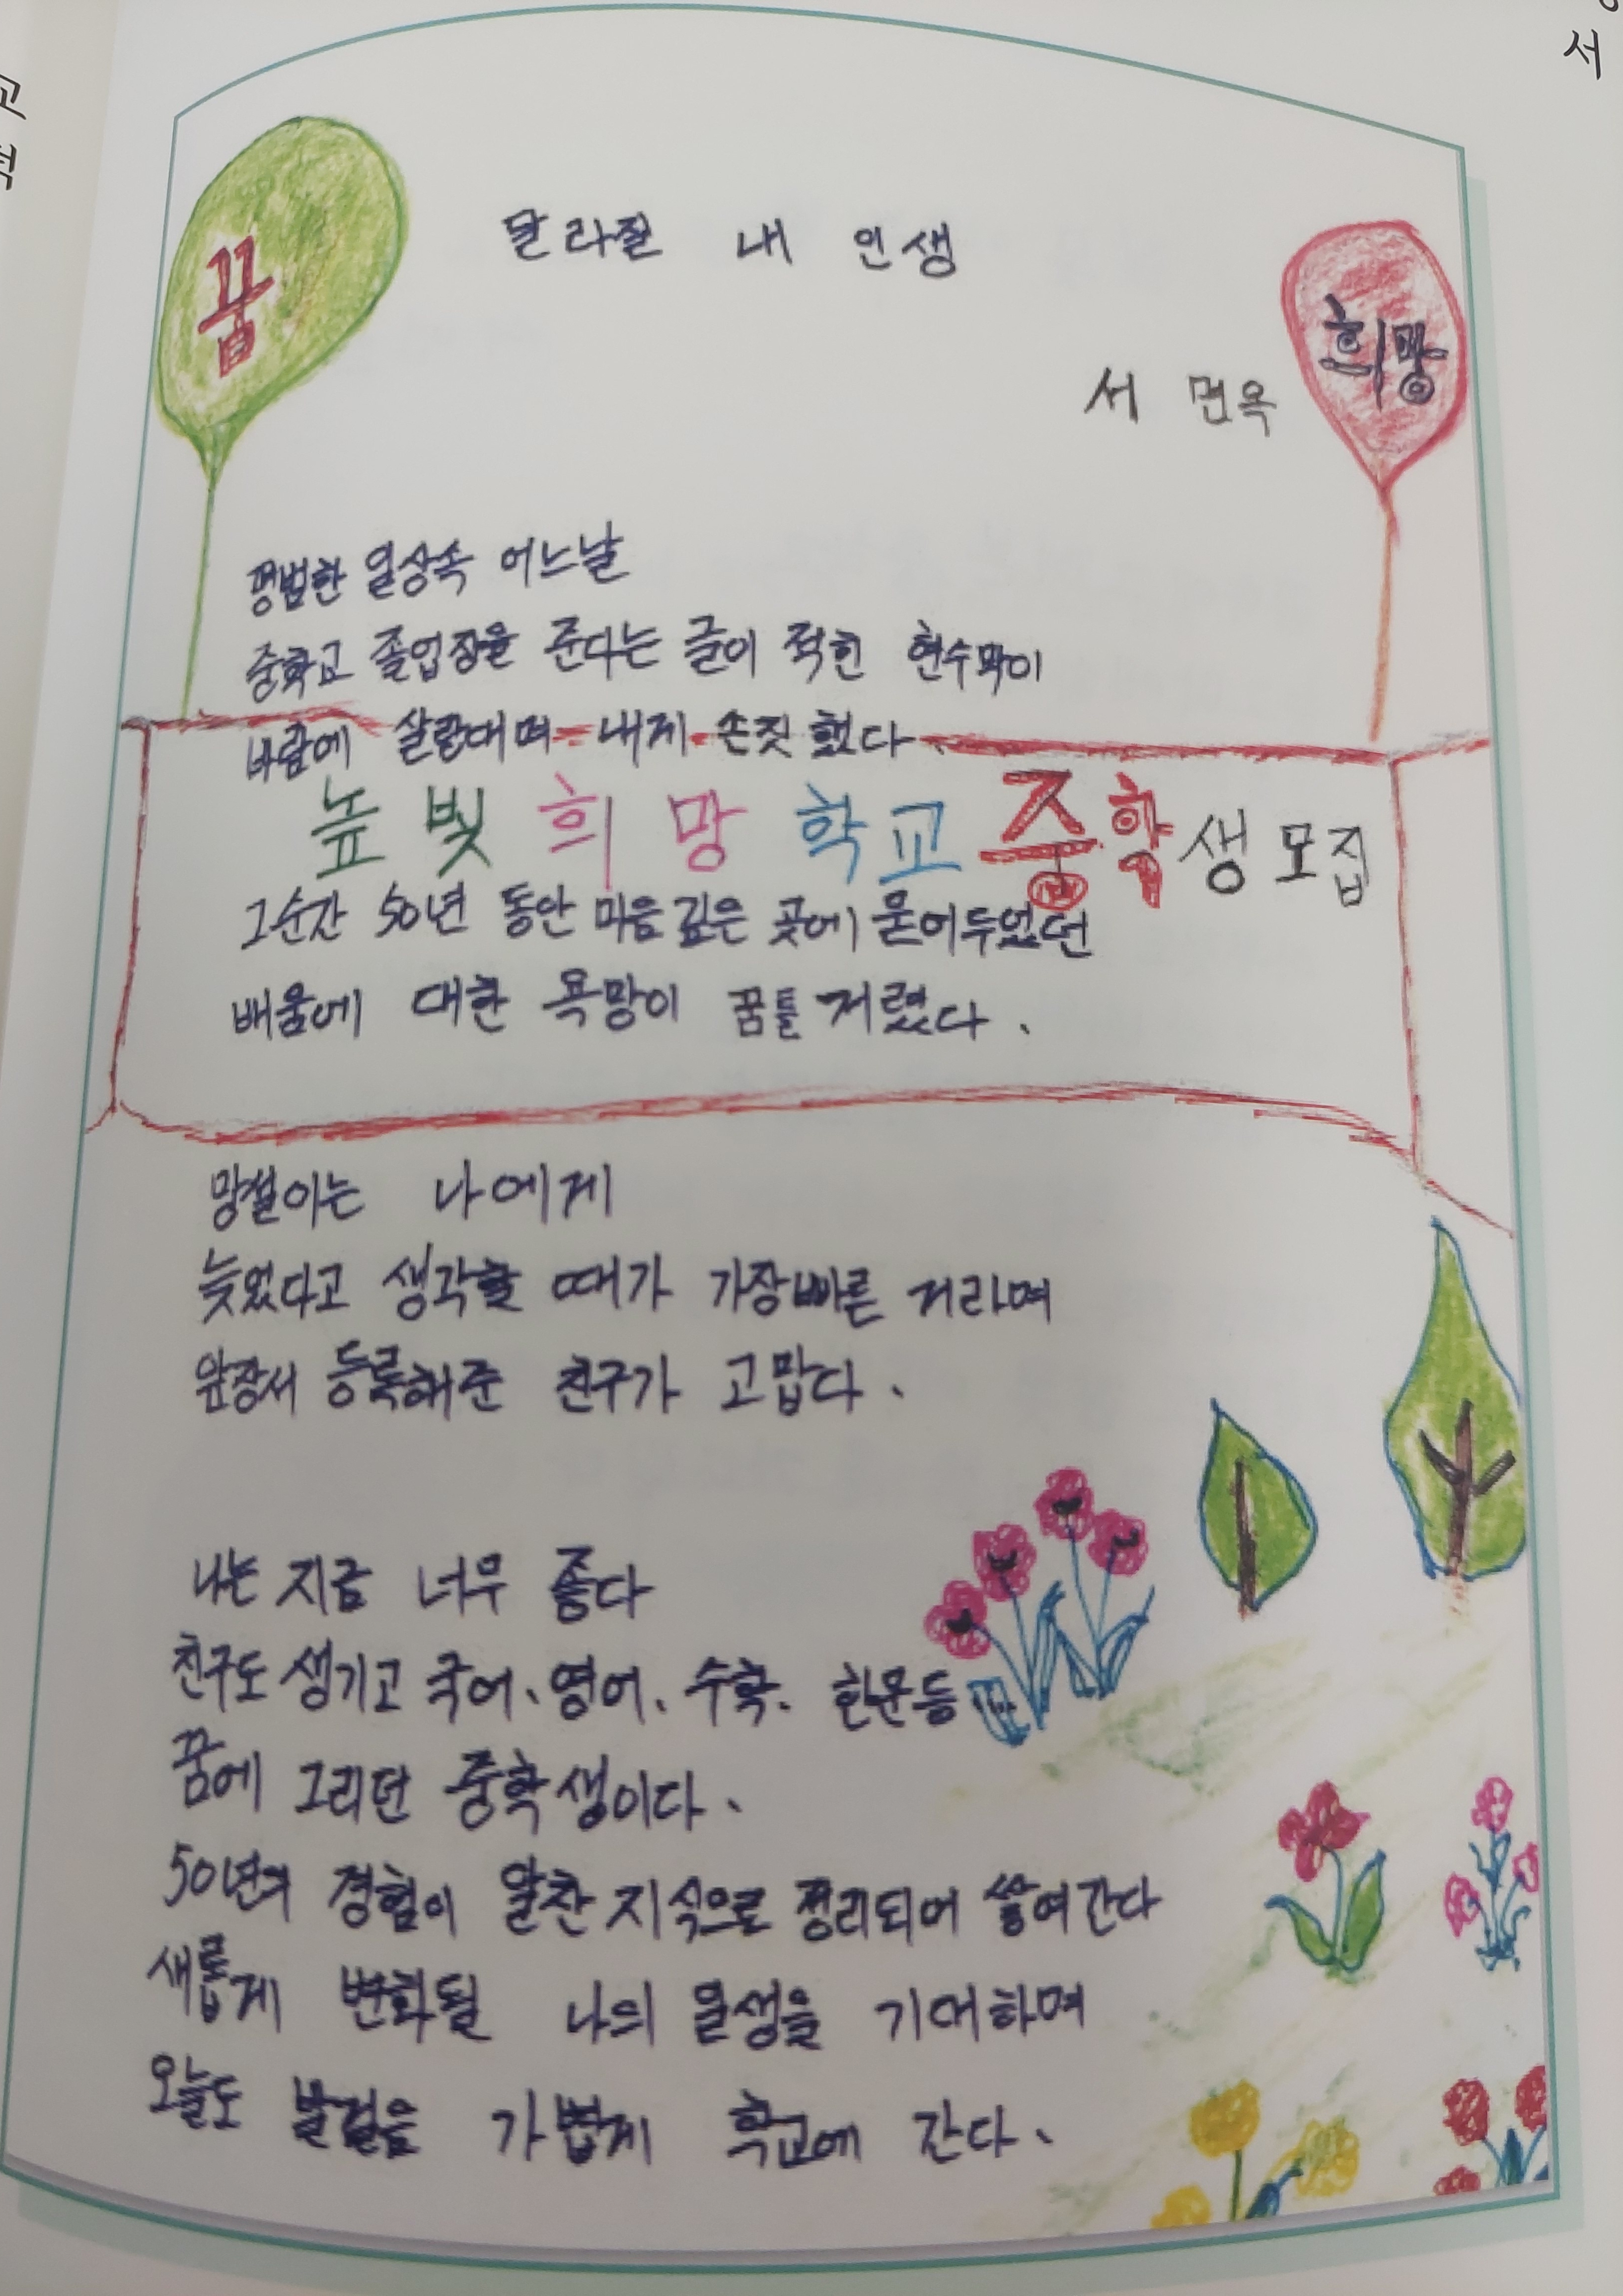 꿈
달라질 내 인생
희망
서 면옥
평범한 일상속 어느날
중학교 졸업장을 준다는 글이 적힌 현수막이
바람에 살랑대며 내게 손짓 했다.
늪빛 희망 학교 중학생 모집
그순간 50년 동안 마음 깊은 곳에 묻어두었던
배움에 대한 욕망이 꿈틀 거렸다.
망설이는 나에게
늦었다고 생각할 때가 가장빠른 거라며
앞장서 등록해준 친구가 고맙다.
나는 지금 너무 좋다
친구도 생기고 국어、영어、수학、한문등
꿈에 그리던 중학생이다.
50년의 경험이 알찬 지식으로 정리되어 쌓여간다
새롭게 변화될 나의 일생을 기대하며
오늘도 발걸음 가볍게 학교에 간다.
고
서